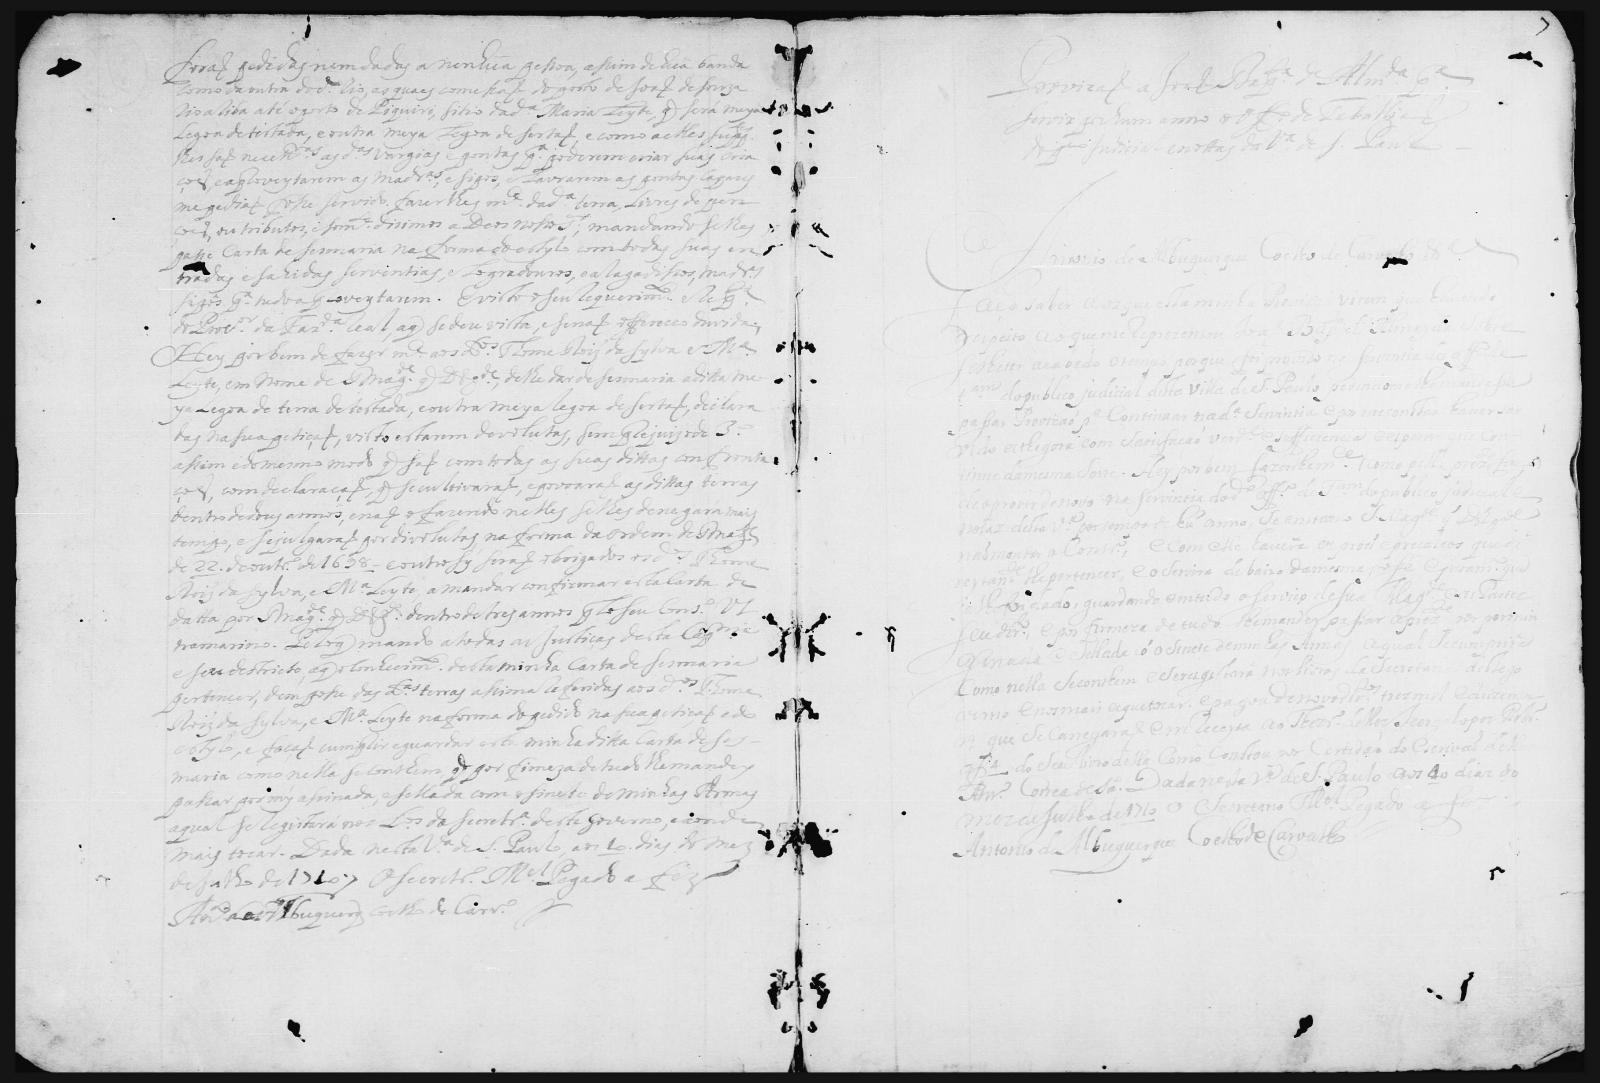 foraõ pedidas nem dadas a nenhũa pessoa, assim de hũa banda
como da outra do d.º Rio, as quaes começaõ do porto de Joaõ de Souza
rio asima até o porto de Piquiri, sitio da d.ª Maria Leyte, q̃ será meya
Legoa de testada, e outra meya Legoa de sertaõ, e como a elles supp.
tes saõ necess.ras as d.as Vargias e pontas p.ª poderem criar suas cria
çoẽs, e aproveytarem as Madr.as, e Lavrarem as pontas
me pediaõ fosse servido fazerlhes m.ce da d.ª terra, Livres de pen
coẽs, ou tributos, e som.te dizimos a Deos nosso S.r, mandando se lhes
passe Carta de sesmaria na forma do estylo com todas suas en
tradas e sahidas serventias, e Logradouros, e alagadissos, madr.as
p.ª tudo aproveytarem. E visto o seu requerim.to e
do Proc.or da Faz.da Real, a q̃ se deu vista, e senaõ offereceo duvida,
Hey por bem de fazer m.ce aos d.os Thome Roiz da Sylva e M.ª
Leyte, em Nome de S Mag.de q̃ D.s g.de, de lhe dar de sesmaria a ditta me-
ya Legoa de terra de testada, e outra meya legoa de sertaõ, declara
das na sua petiçaõ, visto estarem devolutas, sem prejuizo de 3.º
assim e do mesmo modo q̃ saõ com todas as suas dittas confronta
çoẽs, com declaraçaõ, q̃ se cultivaraõ, e povoaraõ as dittas terras
dentro de dous annos, e naõ o fazendo nelles se lhes denegará mais
tempo, e se julgaraõ por devolutas na forma da ordem de S Mag.de
de 22. de outr.º de 1698 - e outro sy seraõ obrigados os d.os Thome
Roiz da Sylva, e M.ª Leyte, a mandar confirmar esta Carta de
datta por S Mag.de q̃ D.s g.de dentro de tres annos p.lo seu Cons.º Ul
tramarino. Pelo q̃ mando a todas as Justiças desta Capp.nia
e seu destricto, a q̃ o conhecim.to desta minha Carta de sesmaria
pertencer, dem posse das d.as terras assima referidas aos d.os Thome
Roiz da Sylva, e M.ª Leyte na forma do pedido na sua petiçaõ e do
estylo, e façaõ cumprir e guardar esta minha ditta Carta de ses-
maria como nella se conthem, q̃ por firmeza de tudo lhe mandey
passar por my assinada, e sellada com o sinete de minhas Armas
a qual se registará nos L.os da secretr.ª deste Governo, e aonde
mais tocar. Dada nesta V.ª de S. Paulo, aos dias do mez
de Julho de 1710 O secretr.º M.el Pegado a fez
Ant.º de Albuquerq̃ Coelho de Carv.º
Provizaõ a Joaõ Bap.ta de Alm.da p.ª
servir por hum anno o off.º de Taballiaõ
do p.co Judicial e nottas da V.ª de S. Paulo
Antonio de Albuquerque Coelho de Carvalho &.ª
Faço saber aos que esta minha Provizaõ virem que havendo
respeito ao que me reprezentou Joaõ Bap.ta de Almeyda sobre
se lhe ter acabado o tempo porque foi provido na serventia do off.º de
t.am do publico judicial desta Villa de S. Paulo pedindome lhe mandasse
passar Provizaõ p.ª Continuar na d.ª Serventia e por me constar haver ser
vido athegora com satisfaçaõ verd.e e sufficiencia e esperar que con
tinue da mesma sorte. Hey por bem fazerlhe m.ce como pella prez.te faço
de o prover de novo na serventia do d.º off.º de T.am do publico judicial e
notas desta V.ª por tempo de hũ anno, se entretanto S Mag.de q̃ D.s g.de
naõ mandar o Contr.º, e Com elle haverá os proes e precalços que di
reytam.te lhe pertencer, e o servira debaixo da mesma posse e juram.to que
guardando em tudo o serviço de sua Mag.de e as partes
seu dir.to e por firmeza de tudo lhe mandey passar a prez.te por my
asinada e Sellada cõ o Sinete de minhas Armas a qual se cumprirá
Como nella se conthem e se registará nos livros da Secretaria deste go
verno e nos mais a que tocar. e pagou de novo dir.to tres mil e duzentos
rs que se Carregaraõ em Receyta ao Thezr.º delles
do seu livro delles Como Constou por Certidaõ do Escrivaõ delles
Ant.º Correa de Sá. Dada nesta V.ª de S. Paulo aos 10 dias do
mez de Julho de 1710 O Secretario M.el Pegado a fez
Antonio de Albuquerque Coelho de Carvalho